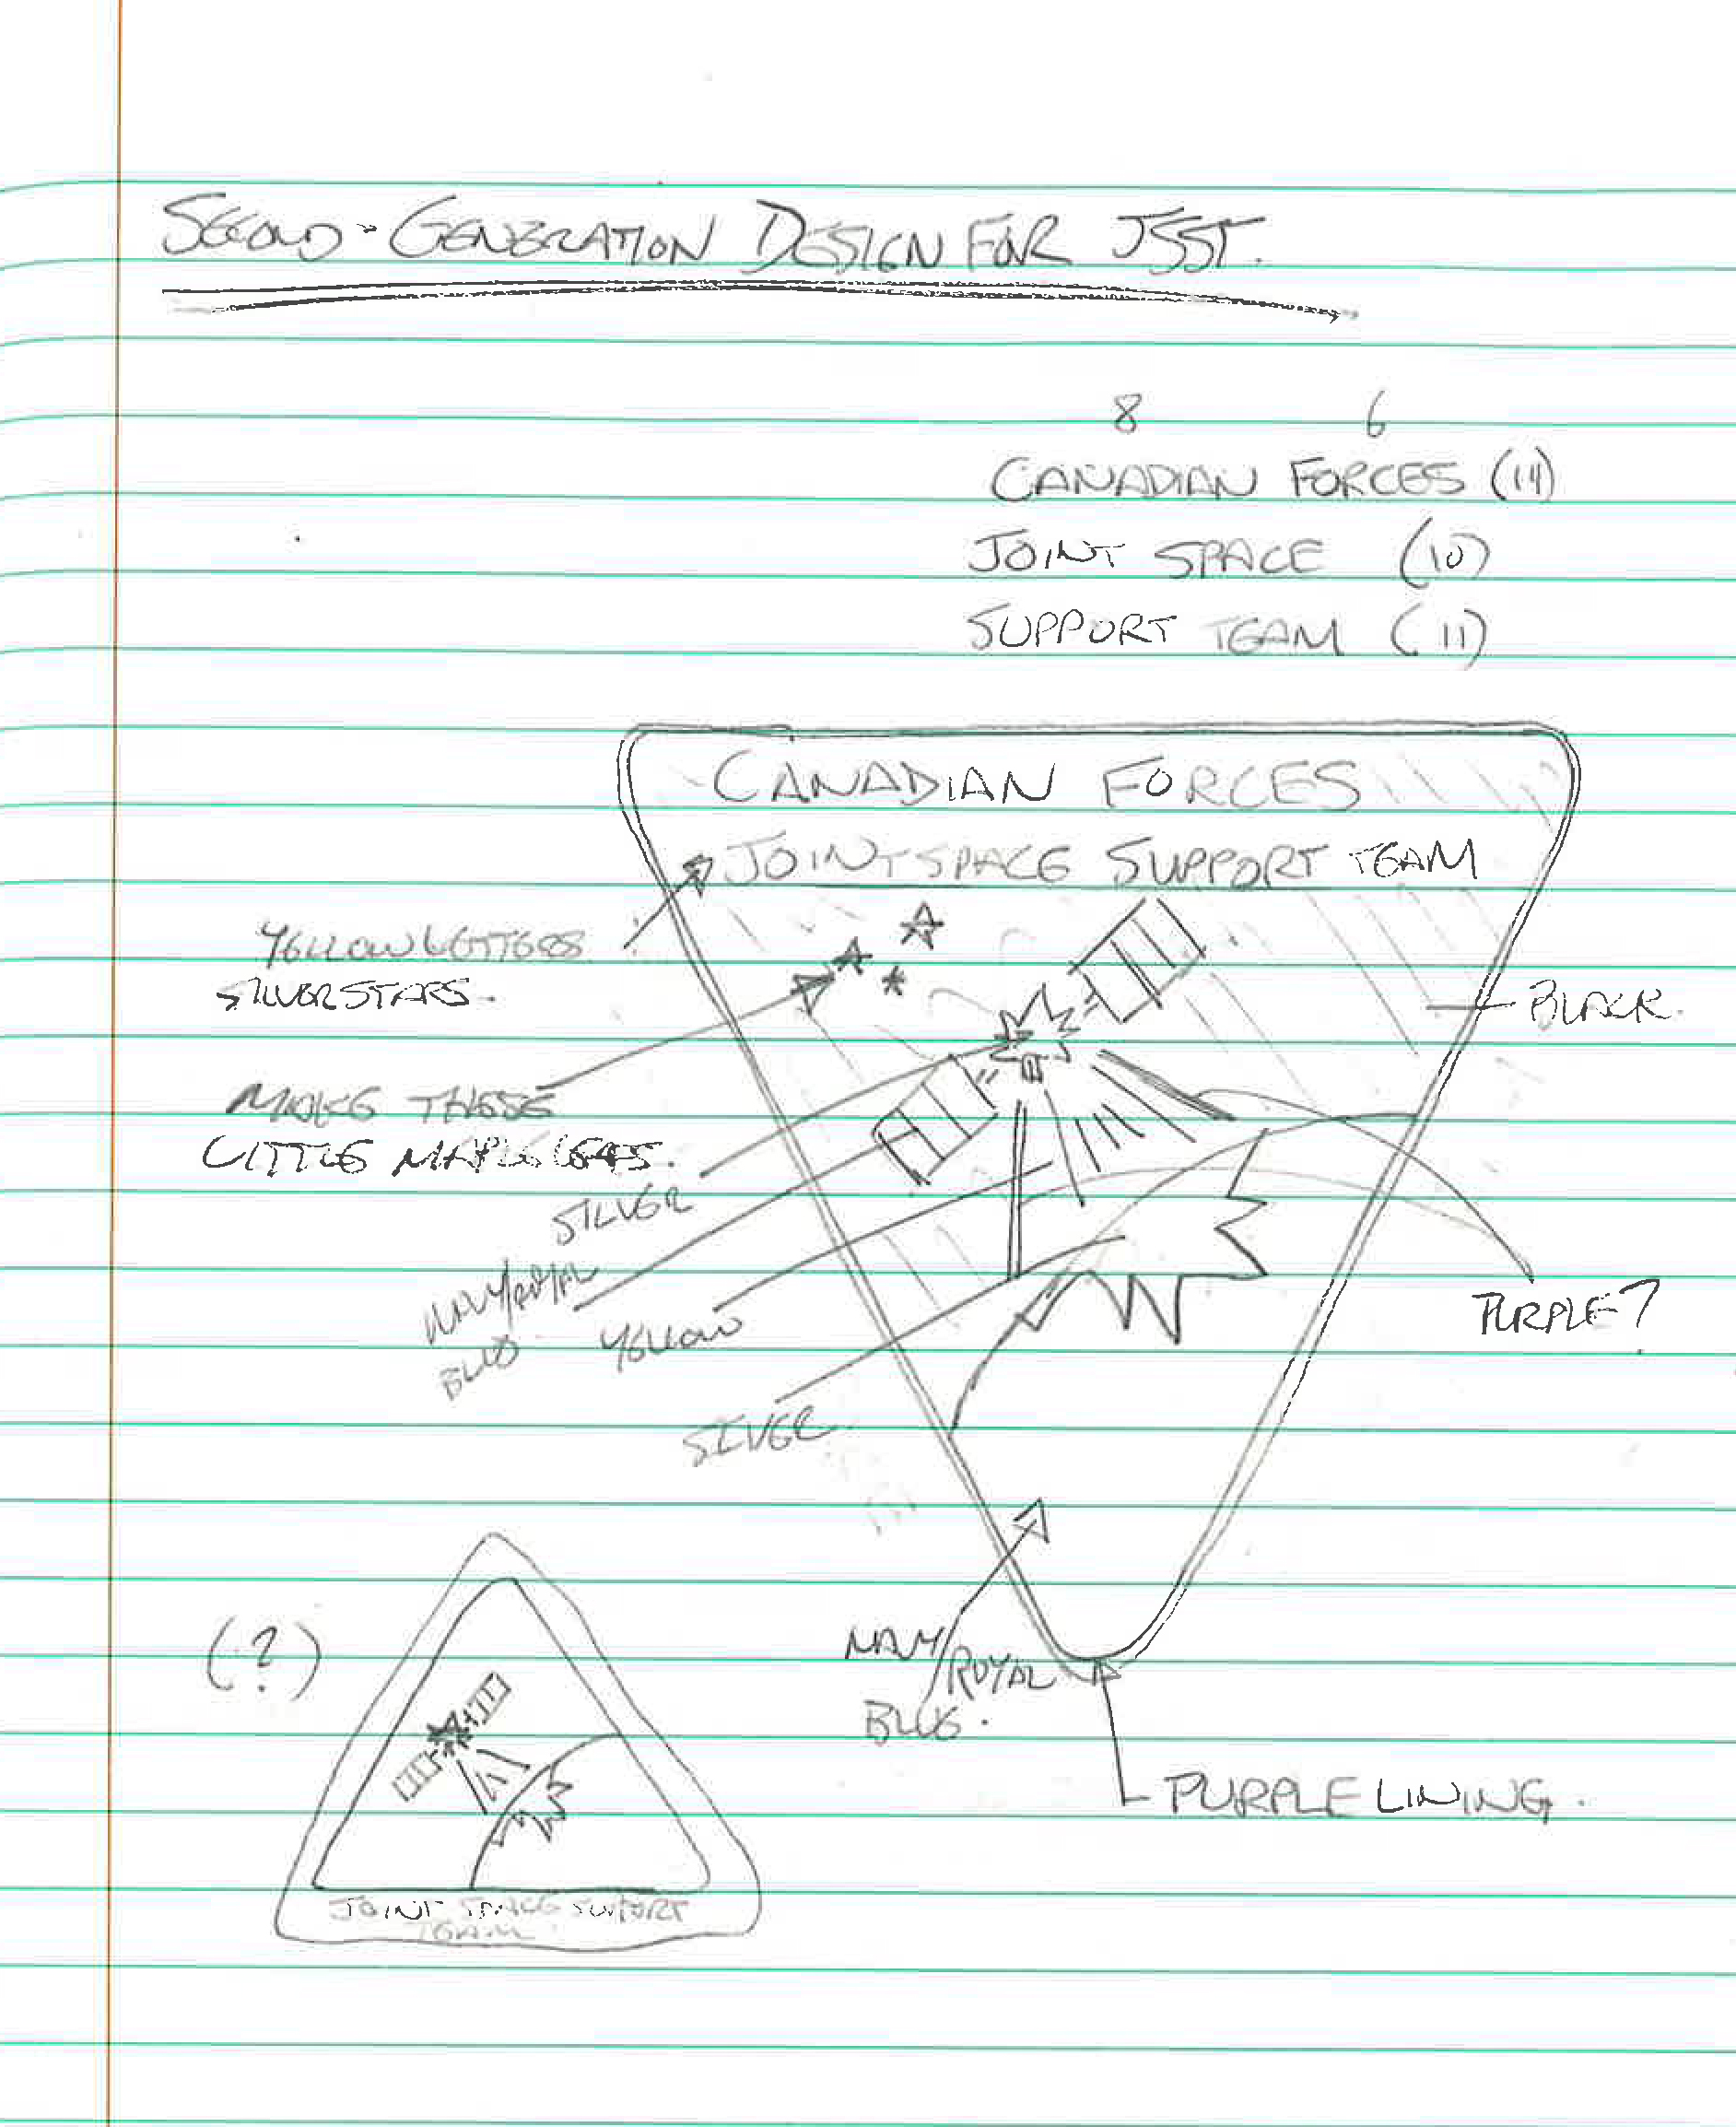 SECOND-GENERATION DESIGN FOR JSST.
8 6
CANADIAN FORCES (14)
JOINT SPACE (10)
SUPPORT TEAM (11)
CANADIAN FORCES
JOINT SPACE SUPPORT TEAM
YELLOW LETTERS
SILVER STARS.
BLACK.
MAKE THESE
LITTLE MAPLE LEAFS.
SILVER
NAVY/ROYAL
BLUE
YELLOW
PURPLE?
SILVER
(?)
NAVY/ROYAL
BLUE.
PURPLE LINING.
JOINT SPACE SUPPORT
TEAM